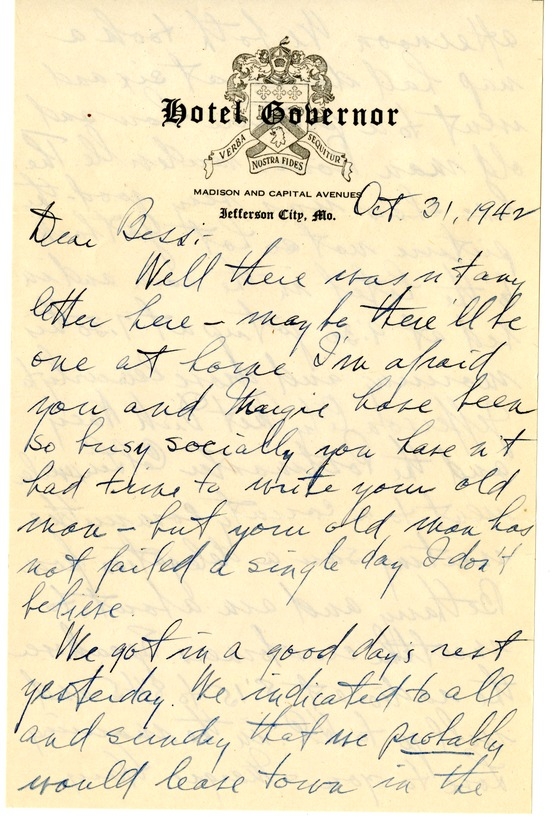 Hotel Governor
VERBA SEQUITUR
NOSTRA FIDES
MADISON AND CAPITAL AVENUES
Jefferson City, Mo.
Oct. 31, 1942
Dear Bess:-
Well there wasn't any
letter here - maybe there'll be
one at home. I'm afraid
you and Margie have been
so busy socially you haven't
had time to write your old
man - but your old man has
not failed a single day I don't
believe.
We got in a good day's rest
yesterday. We indicated to all
and sundry that we probably
would leave town in the